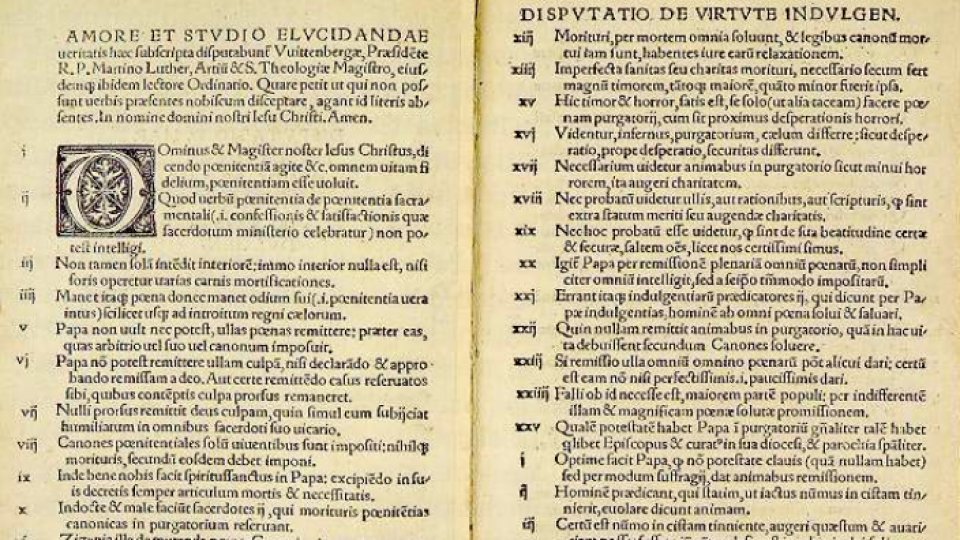 AMORE ET STVDIO ELVCIDANDAE
ueritatis hæc subscripta disputabunť Vuittenbergæ, Præsidēte
R. P. Martino Luther, Artiū & S. Theologiæ Magistro, eius-
demq; ibidem lectore Ordinario. Quare petit ut qui non pos-
sunt uerbis præsentes nobiscum disceptare, agant id literis ab-
sentes. In nomine domini nostri Iesu Christi. Amen.
i Ominus & Magister noster Iesus Christus, di-
cendo pœnitentiā agite &c. omnem uitam fi-
delium, pœnitentiam esse uoluit.
ij Quod uerbū pœnitentia de pœnitentia sacra-
mentali (.i. confessionis & satisfactionis quæ
sacerdotum ministerio celebratur) non po-
test intelligi.
iij Non tamen solā intēdit interiorē; immo interior nulla est, nisi
foris operetur uarias carnis mortificationes.
iiij Manet itaq; pœna donec manet odium sui (.i. pœnitentia uera
intus) scilicet usq; ad introitum regni cælorum.
v Papa non uult nec potest, ullas pœnas remittere; præter eas,
quas arbitrio uel suo uel canonum imposuit.
vj Papa nō potest remittere ullam culpā, nisi declarādo & appro-
bando remissam a deo. Aut certe remittēdo casus reseruatos
sibi, quibus contēptis culpa prorsus remaneret.
vij Nulli prorsus remittit deus culpam, quin simul eum subijciat
humiliatum in omnibus sacerdoti suo uicario.
viij Canones pœnitentiales solū uiuentibus sunt impositi; nihilq;
morituris, secundū eosdem debet imponi.
ix Inde bene nobis facit spiritussanctus in Papa: excipiēdo in su-
is decretis semper articulum mortis & necessitatis.
x Indocte & male faciūt sacerdotes ij, qui morituris pœnitētias
canonicas in purgatorium reseruant.
DISPVTATIO DE VIRTVTE INDVLGEN.
xiij Morituri, per mortem omnia soluunt, & legibus canonū mor-
tui iam sunt, habentes iure earū relaxationem.
xiiij Imperfecta sanitas seu charitas morituri, necessario secum fert
magnū timorem, tātoq; maiorē, quāto minor fuerit ipsa.
xv Hic timor & horror, satis est, se solo (ut alia taceam) facere pœ-
nam purgatorij, cum sit proximus desperationis horrori.
xvj Videntur, infernus, purgatorium, cælum differre; sicut despe-
ratio, prope desperatio, securitas differunt.
xvij Necessarium uidetur animabus in purgatorio sicut minui hor-
rorem, ita augeri charitatem.
xviij Nec probatū uidetur ullis, aut rationibus, aut scripturis, ꝙ sint
extra statum meriti seu augendæ charitatis.
xix Nec hoc probatū esse uidetur, ꝙ sint de sua beatitudine certæ
& securæ, saltem oēs, licet nos certissimi simus.
xx Igiť Papa per remissionē plenariā omniū pœnarū, non simpli-
citer omniū intelligit, sed a seipō tm̄modo impositarū.
xxj Errant itaq; indulgentiarū prædicatores ij, qui dicunt per Pa-
pæ indulgentias, hominē ab omni pœna solui & saluari.
xxij Quin nullam remittit animabus in purgatorio, quā in hac ui-
ta debuissent secundum Canones soluere.
xxiij Si remissio ulla omnium omnino pœnarū pōt alicui dari; certū
est eam nō nisi perfectissimis .i. paucissimis dari.
xxiiij Falli ob id necesse est, maiorem partē populi; per indifferentē
illam & magnificam pœnæ solutæ promissionem.
xxv Qualē potestatē habet Papa ī purgatoriū gn̄aliter talē habet
q̄libet Episcopus & curatꝰ in sua diocesi, & parochia sp̄aliter.
j Optime facit Papa, ꝙ nō potestate clauis (quā nullam habet)
sed per modum suffragij, dat animabus remissionem.
ij Hominē prædicant, qui statim, ut iactus nūmus in cistam tin-
nierit, euolare dicunt animam.
iij Certū est nūmo in cistam tinniente, augeri quæstum & auari-